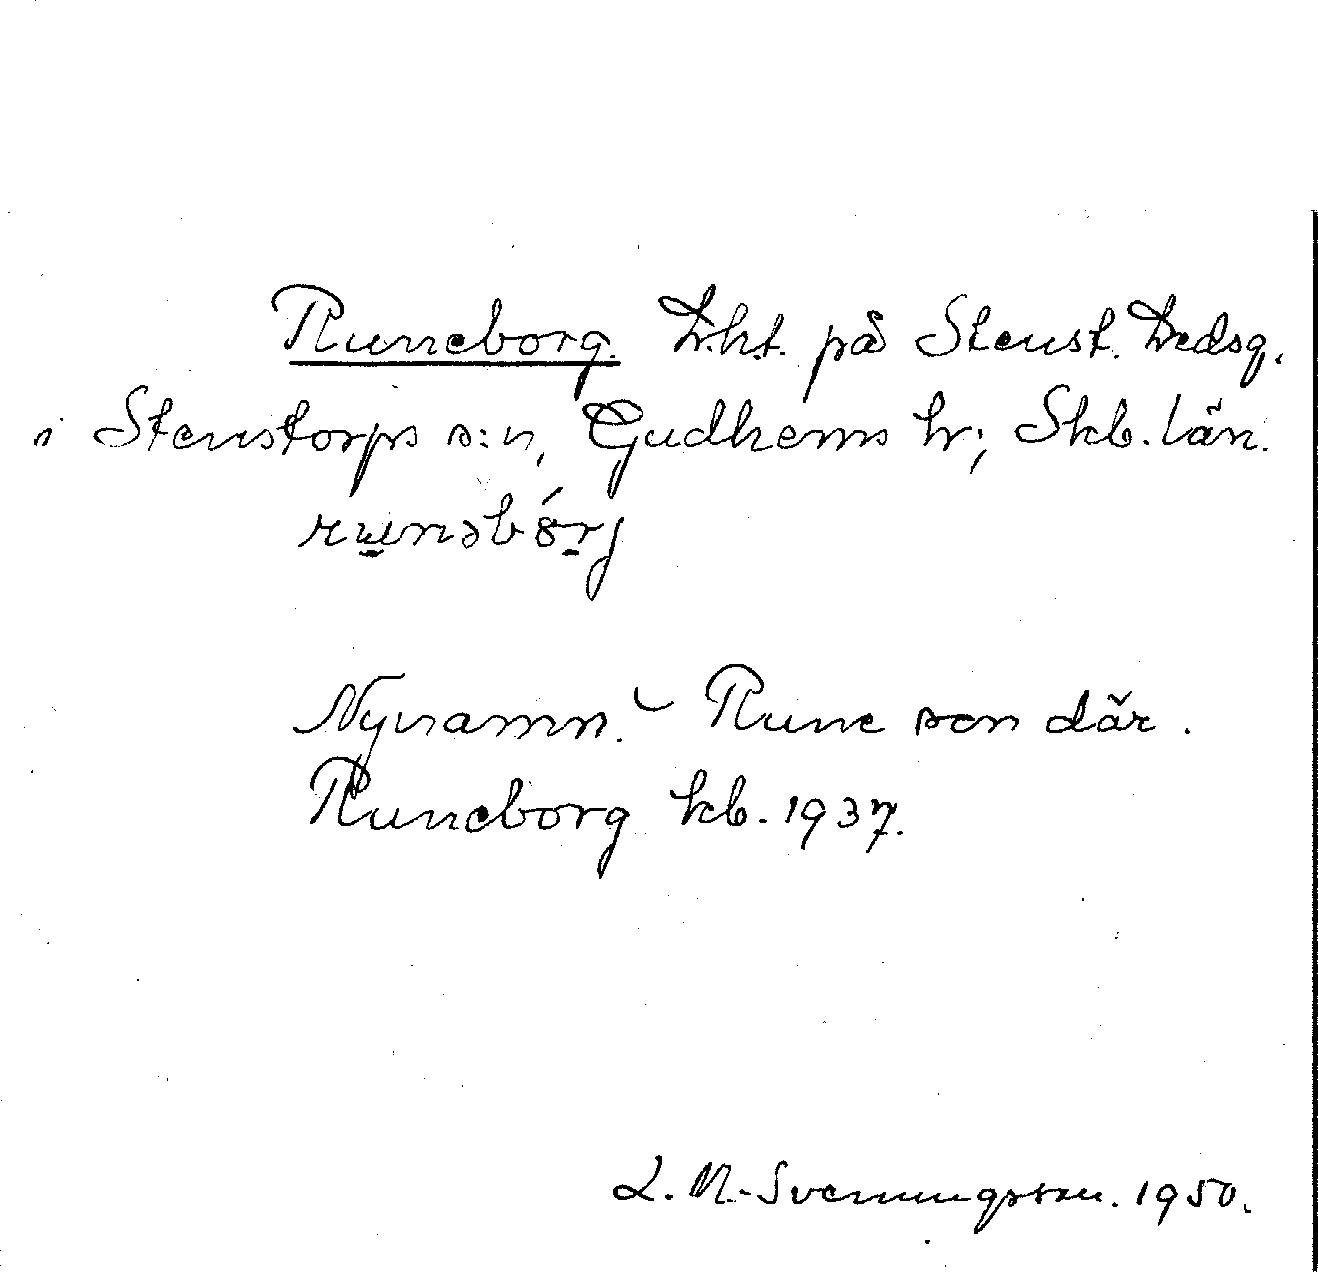 Runeborg. Lht. på Stenst. Dedsg.
i Stenstorps s:n, Gudhems hr; Skb. län.
runəbórj
Nynamn. – Rune son där.
Runeborg kb. 1937.
L. M. Svenungsson. 1950.